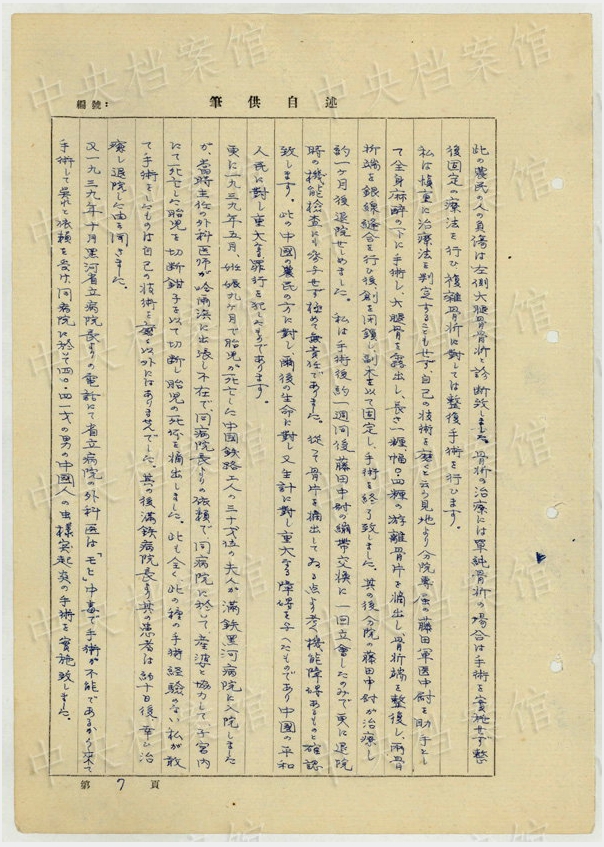 編號：
述自供筆
此の農民の人の負傷は左側大腿骨骨折と診断致しました。骨折の治療には單純骨折の場合は手術を実施せず整
後固定の療法を行ひ複雜骨折に対しては整復手術を行ひます。
私は慎重に治療法を判定することもせず自己の技術を磨くと云う見地より分院専属の藤田軍医中尉を助手とし
て全身麻醉の下に手術し、大腿骨を露出し、長さ一糎幅〇.四糎の游離骨片を摘出し骨折端を整復し、兩骨
折端を銀線縫合を行ひ後、創を閉鎖し、副木を以て固定し、手術を終了致しました。其の後分院の藤田中尉が治療し
約一ケ月後退院せしめました。私は手術後約一週间後藤田中尉の繃帯交換に一回立會したのみで更に退院
時の機能検査にも参与せず極めて無責任でありました。従って骨片を摘出してゐる点より考へ機能障碍あるものと確認
致します。此の中國の農民の方に対し爾後の生命に対し又生計に対し重大なる障碍を与へたものであり中國の平和
人民に対し重大なる罪行を犯したものであります。
更に一九三九年五月妊娠九ケ月で胎児が死亡した中國鉄路工人の三十才位の夫人が滿鉄黒河病院に入院しました
が、當時主任の外科医師が哈爾浜に出張し不在で、同病院長よりの依頼で、同病院に於いて産婆と協力して、子宮内
にて死亡した胎児を切断鉗子を以て切断し胎児の死体を摘出しました。此も全く此の種の手術経験のない私が敢
て手術をしたものは自己の技術を磨く以外にはありませんでした。其の後滿鉄病院長より其の患者は約十日後、幸ひ治
癒し退院した由を闻きました。
又一九三九年十月黒河省立病院長よりの電話にて省立病院の外科医は「モヒ」中毒で手術が不能であるから来て
手術して呉れと依頼を受け、同病院に於いて四〇.四一才の男の中國人の虫様突起炎の手術を実施致しました。
第 7 頁
中央档案馆